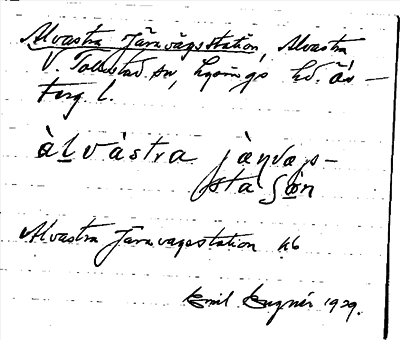 Alvastra Järnvägsstation, Alvastra
V. Tollstad sn, Lysings hd. Ös-
terg l.
àlvàstra jæṇvæg-
staʃòn
Alvastra Järnvagsstation hb
Emil 1929.